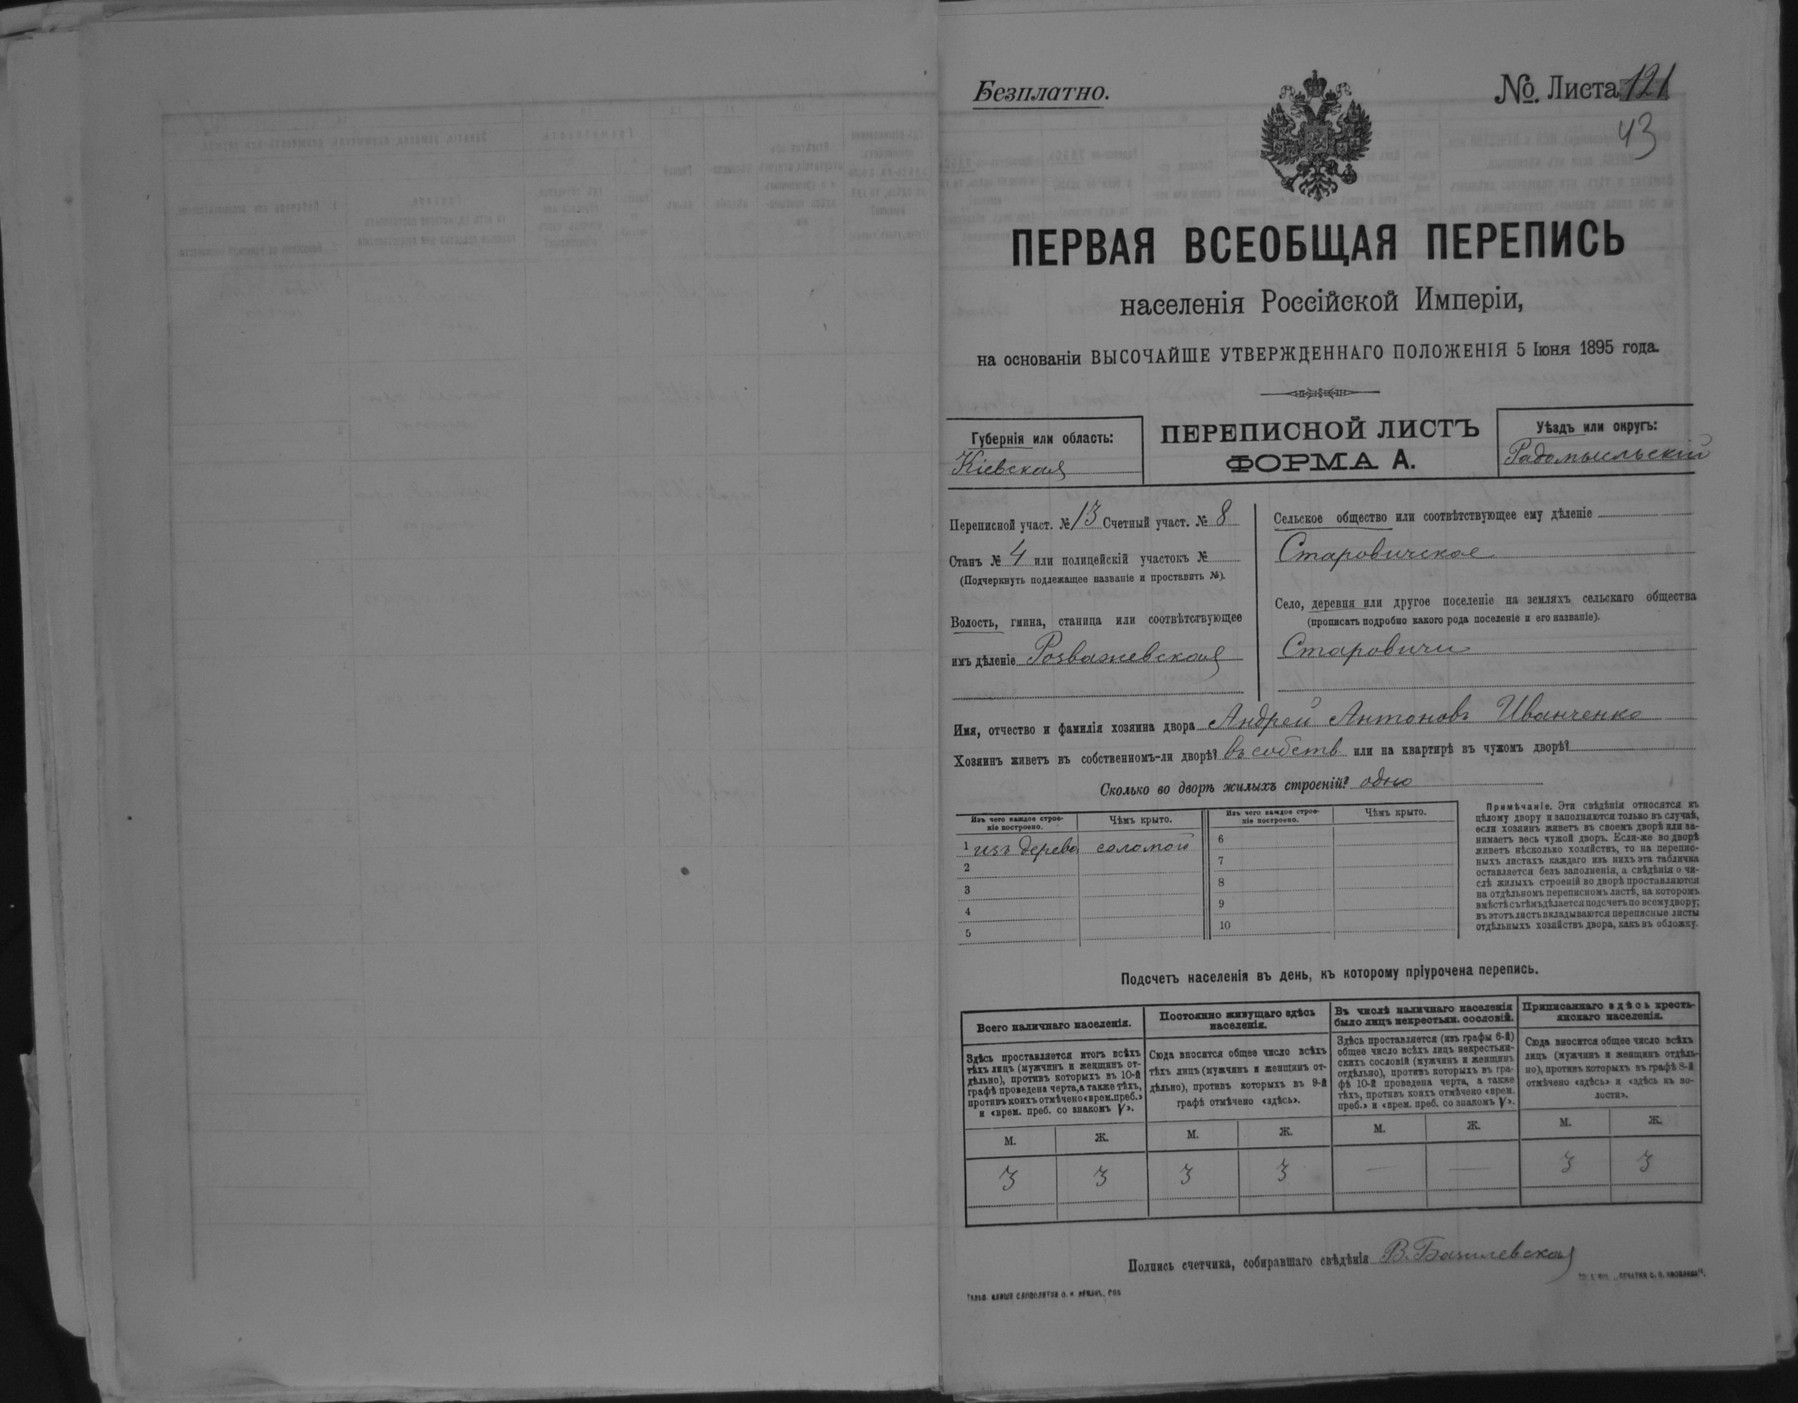 Безплатно.
№. Листа 121
43
ПЕРВАЯ ВСЕОБЩАЯ ПЕРЕПИСЬ
населенія Россійской Имперіи,
на основаніи ВЫСОЧАЙШЕ УТВЕРЖДЕННАГО ПОЛОЖЕНІЯ 5 Іюня 1895 года.
Губернія или область:
Кіевская
ПЕРЕПИСНОЙ ЛИСТЪ
ФОРМА А.
Уѣздъ или округъ:
Радомысльскій
Переписной участ. № 13 Счетный участ. № 8
Станъ № 4 или полицейскій участокъ №
(Подчеркнуть подлежащее названіе и проставить №).
Волость, гмина, станица или соотвѣтствующее
имъ дѣленіе Розважевская
Сельское общество или соотвѣтствующее ему дѣленіе
Старовичское
Село, деревня или другое поселеніе на земляхъ сельскаго общества
(прописать подробно какого рода поселеніе и его названіе).
Старовичи
Имя, отчество и фамилія хозяина двора Андрей Антоновъ Иванченко
Хозяинъ живетъ въ собственномъ-ли дворѣ? въ собств или на квартирѣ въ чужомъ дворѣ?
Сколько во дворѣ жилыхъ строеній? одно
Изъ чего каждое строе-
ніе построено.
Чѣмъ крыто.
1 изъ дерева соломой
2
3
4
5
Изъ чего каждое строе-
ніе построено.
Чѣмъ крыто.
6
7
8
9
10
Примѣчаніе. Эти свѣдѣнія относятся къ
цѣлому двору и заполняются только въ случаѣ,
если хозяинъ живетъ въ своемъ дворѣ или за-
нимаетъ весь чужой дворъ. Если-же во дворѣ
живетъ нѣсколько хозяйствъ, то на перепис-
ныхъ листахъ каждаго изъ нихъ эта табличка
оставляется безъ заполненія, а свѣдѣнія о чи-
слѣ жилыхъ строеній во дворѣ проставляются
на отдѣльномъ переписномъ листѣ, на которомъ
вмѣстѣ съ тѣмъ дѣлается подсчетъ по всему двору;
въ этотъ листъ вкладываются переписные листы
отдѣльныхъ хозяйствъ двора, какъ въ обложку.
Подсчетъ населенія въ день, къ которому пріурочена перепись.
Всего наличнаго населенія.
Здѣсь проставляется итогъ всѣхъ
тѣхъ лицъ (мужчинъ и женщинъ от-
дѣльно), противъ которыхъ въ 10-й
графѣ проведена черта, а также тѣхъ,
противъ коихъ отмѣчено «врем. преб.»
и «врем. преб. со знакомъ V».
М. Ж.
3 3
Постоянно живущаго здѣсь
населенія.
Сюда вносится общее число всѣхъ
тѣхъ лицъ (мужчинъ и женщинъ от-
дѣльно), противъ которыхъ въ 9-й
графѣ отмѣчено «здѣсь».
М. Ж.
3 3
Въ числѣ наличнаго населенія
было лицъ некрестьян. сословій.
Здѣсь проставляется (изъ графы 6-й)
общее число всѣхъ лицъ некрестьян-
скихъ сословій (мужчинъ и женщинъ
отдѣльно), противъ которыхъ въ гра-
фѣ 10-й проведена черта, а также
тѣхъ, противъ коихъ отмѣчено «врем.
преб.» и «врем. преб. со знакомъ V».
М. Ж.
— —
Приписаннаго здѣсь кресть-
янскаго населенія.
Сюда вносится общее число всѣхъ
лицъ (мужчинъ и женщинъ отдѣль-
но), противъ которыхъ въ графѣ 8-й
отмѣчено «здѣсь» и «здѣсь въ во-
лости».
М. Ж.
3 3
Подпись счетчика, собиравшаго свѣдѣнія В. Базилевская